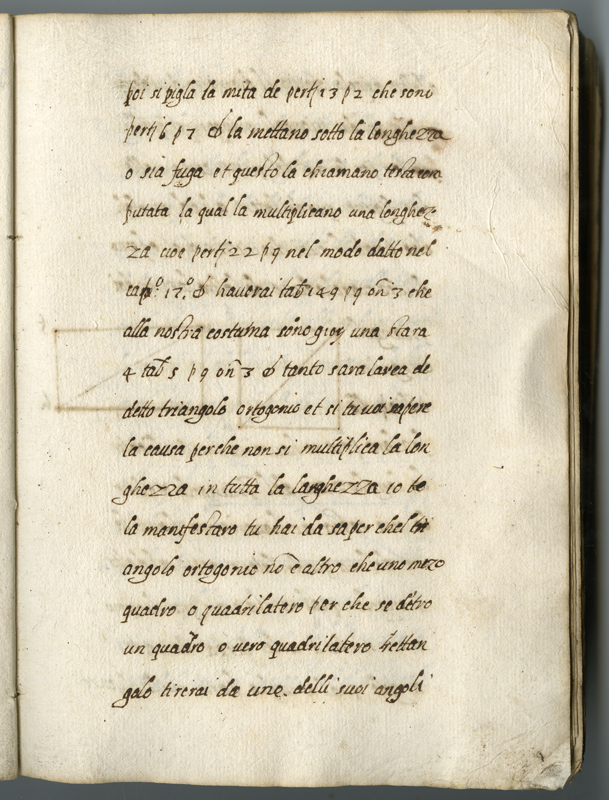 poi si pigla la mita de pertj 13 p 2 che sono
pertj 6 p 7 & la mettano sotto la longhezza
o sia fuga et questo la chiamano testa com
putata la qual la multiplicano una longhez
za cioe pertj 22 p 9 nel modo datto nel
cap.º 17.º & haverai tab 149 p 9 on 3 che
alla nostra costuma sono gior una stara
4 tab 5 p 9 on 3 & tanto sara larea de
detto triangolo ortogonio et si tu voi sapere
la causa perche non si multiplica la lon
ghezza in tutta la larghezza io te
la manifestaro tu hai da saper chel tri
angolo ortogonio nō è altro che uno mezo
quadro o quadrilatero per che se dētro
un quadro o vero quadrilatero rettan
golo tirerai da uno delli suoi angoli